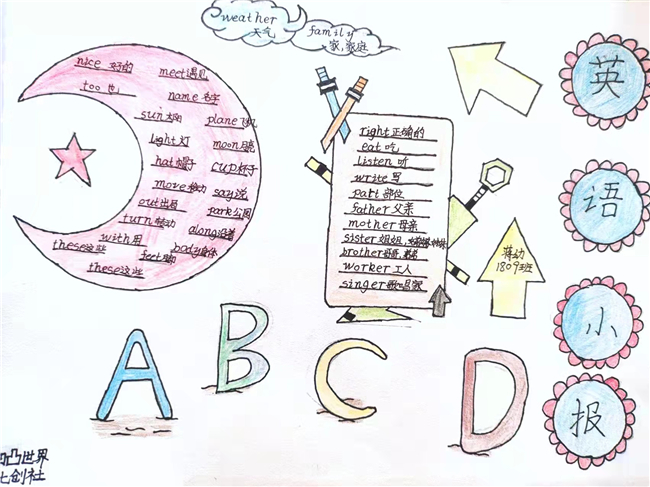 weather
天气
family
家,家庭
nice 好的
meet遇见
too 也
name 名字
sun 太阳
plane飞机
light灯
moon月亮
hat帽子
cup杯子
move移动
say说
out出局
park公园
turn转动
along沿着
with用
body身体
these这些
feet脚
these这些
right正确的
eat吃
listen 听
write 写
part 部位
father 父亲
mother 母亲
sister 姐姐,
brother哥哥,
worker 工人
singer歌唱家
1809班
英
语
小
报
A
B
C
D
凹凸世界
七创社